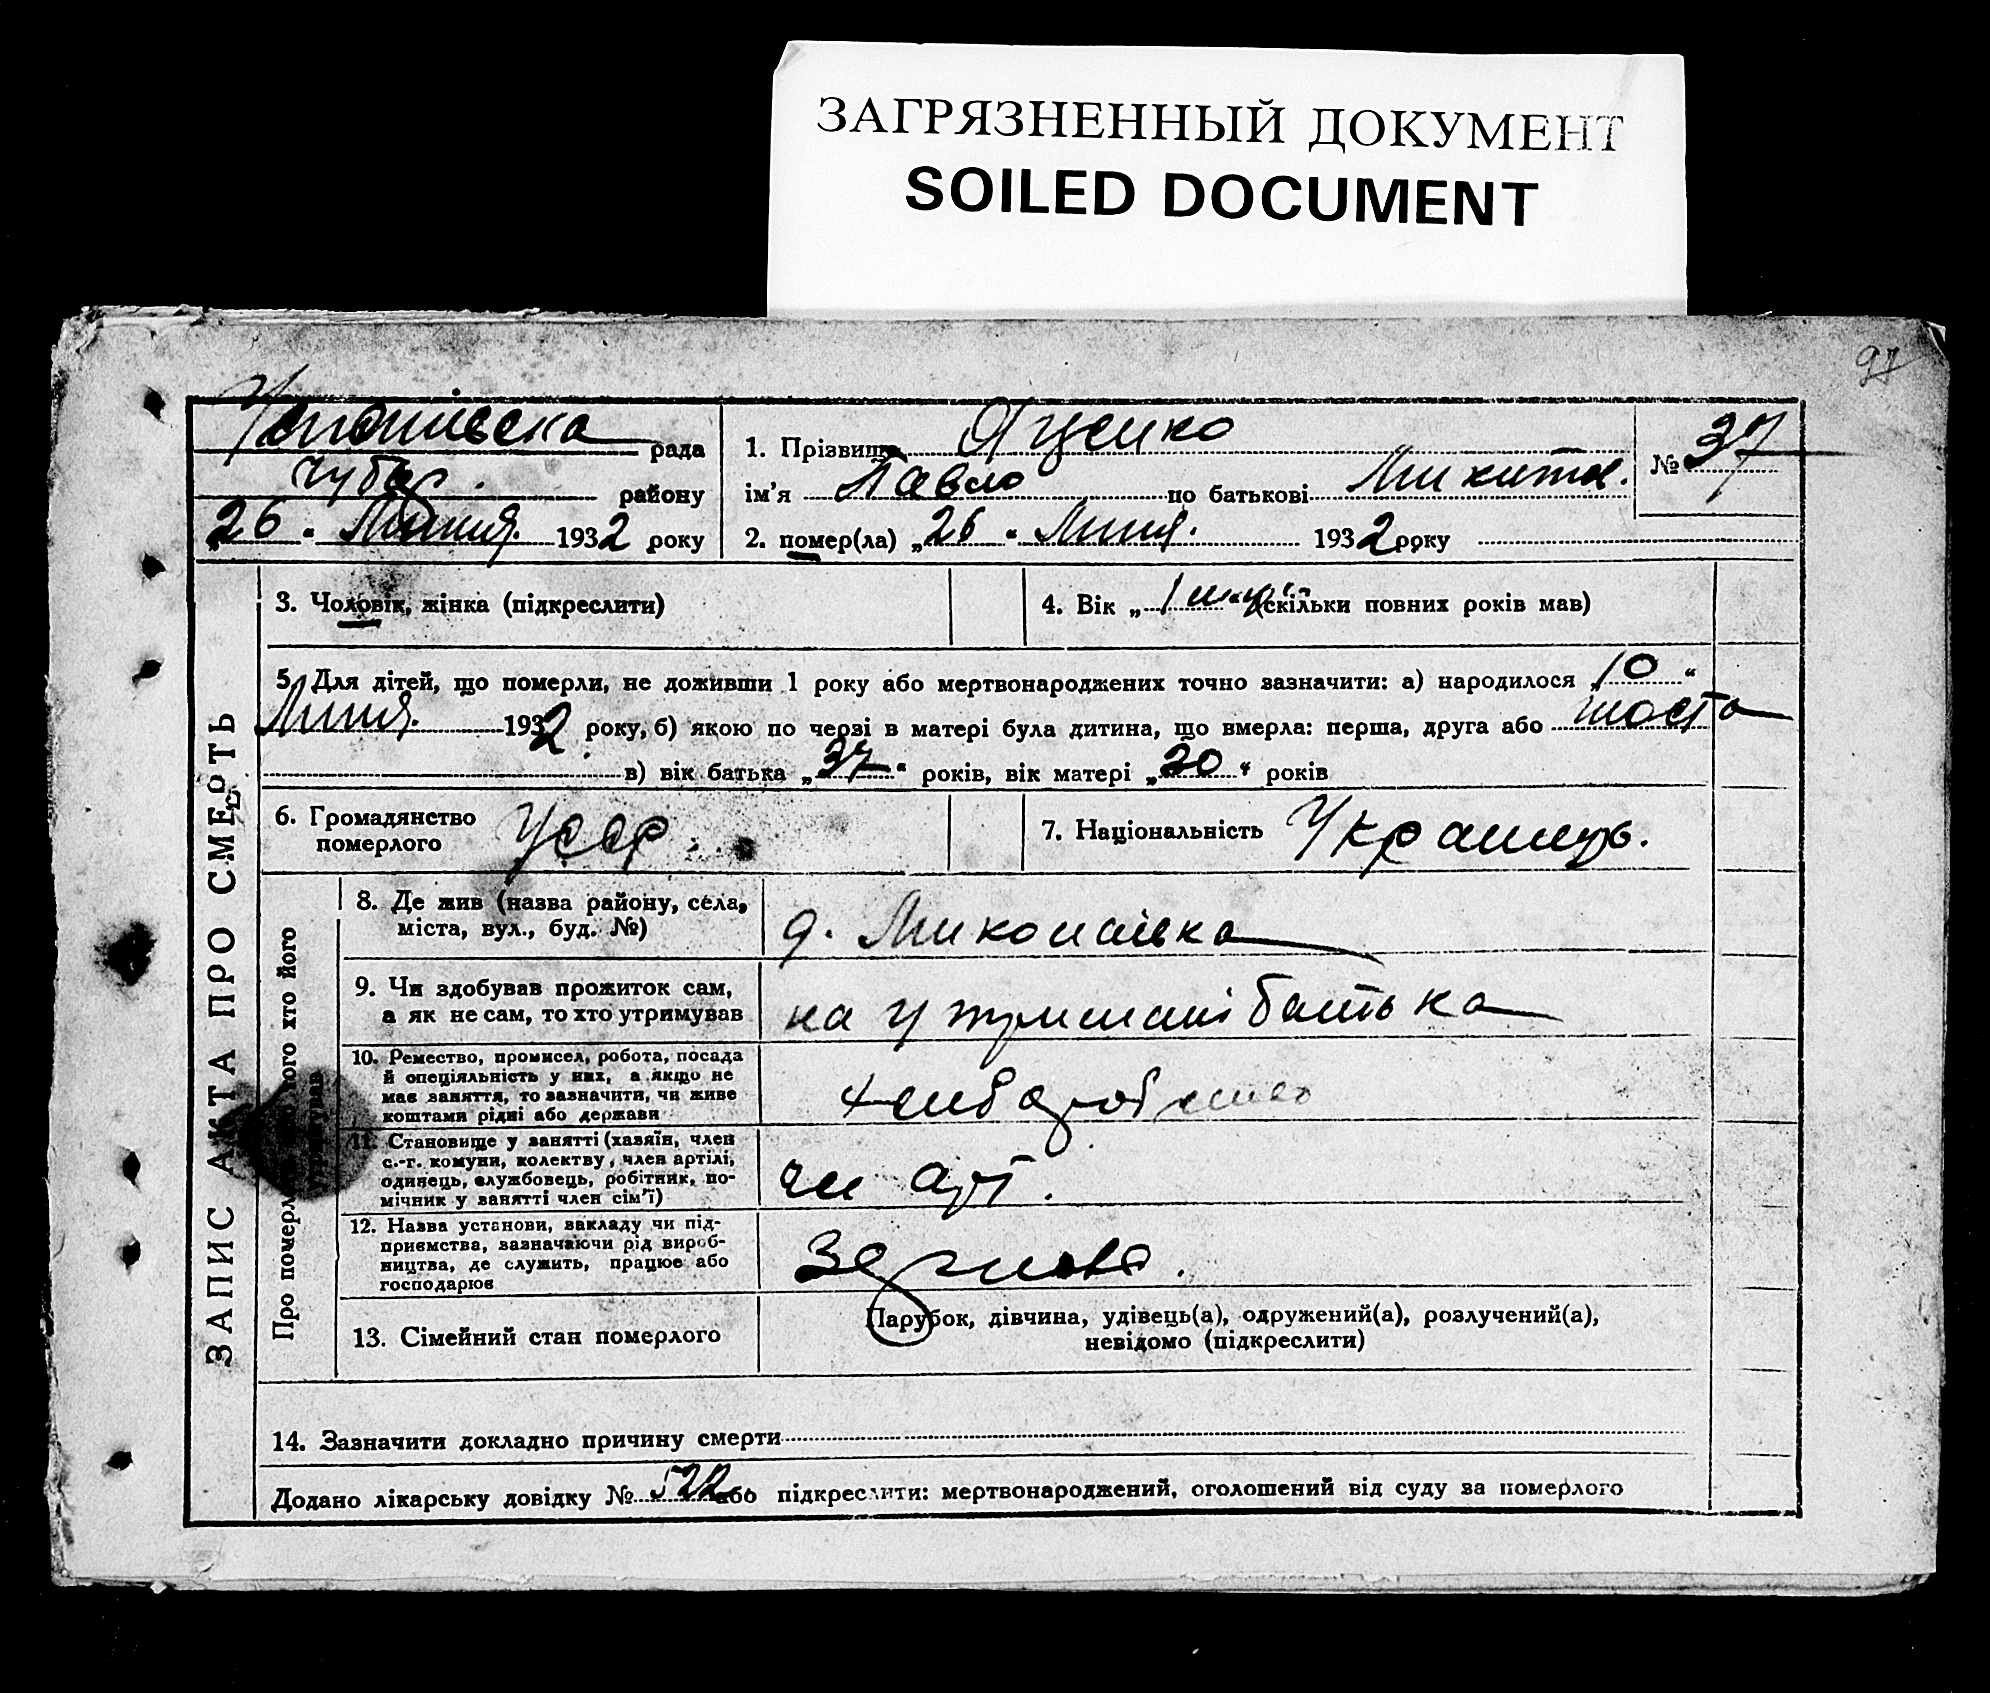 ЗАГРЯЗНЕННЫЙ ДОКУМЕНТ
SOILED DOCUMENT
97
рада
Чубар. району
„26" Липня. 1932 року
1. Прізвище Яценко
ім'я Павло по батькові Микит.
2. помер(ла) „26" Липня. 1932 року
№ 37
ЗАПИС АКТА ПРО СМЕРТЬ
3. Чоловік, жінка (підкреслити)
4. Вік „1 (скільки повних років мав)
5. Для дітей, що померли, не доживши 1 року або мертвонароджених точно зазначити: а) народилося „10"
Липня. 1932 року, б) якою по черзі в матері була дитина, що вмерла: перша, друга або шоста
в) вік батька „37" років, вік матері „30" років
6. Громадянство
померлого
УССР.
7. Національність Украинць.
8. Де жив (назва району, села,
міста, вул., буд. №)
д. Миколаівка
9. Чи здобував прожиток сам,
а як не сам, то хто утримував
на утриманні батька
10. Ремество, промисел, робота, посада
й спеціяльність у них, а якщо не
має заняття, то зазначити, чи живе
коштами рідні або держави
11. Становище у занятті (хазяїн, член
с.-г. комуни, колективу, член артілі,
одинець, службовець, робітник, по-
мічник у занятті член сім'ї)
чл арт.
12. Назва установи, закладу чи під-
приємства, зазначаючи рід вироб-
ництва, де служить, працює або
господарює
Зернова.
13. Сімейний стан померлого
Парубок, дівчина, удівець(а), одружений(а), розлучений(а),
невідомо (підкреслити)
14. Зазначити докладно причину смерти
Додано лікарську довідку № 522 або підкреслити: мертвонароджений, оголошений від суду за померлого